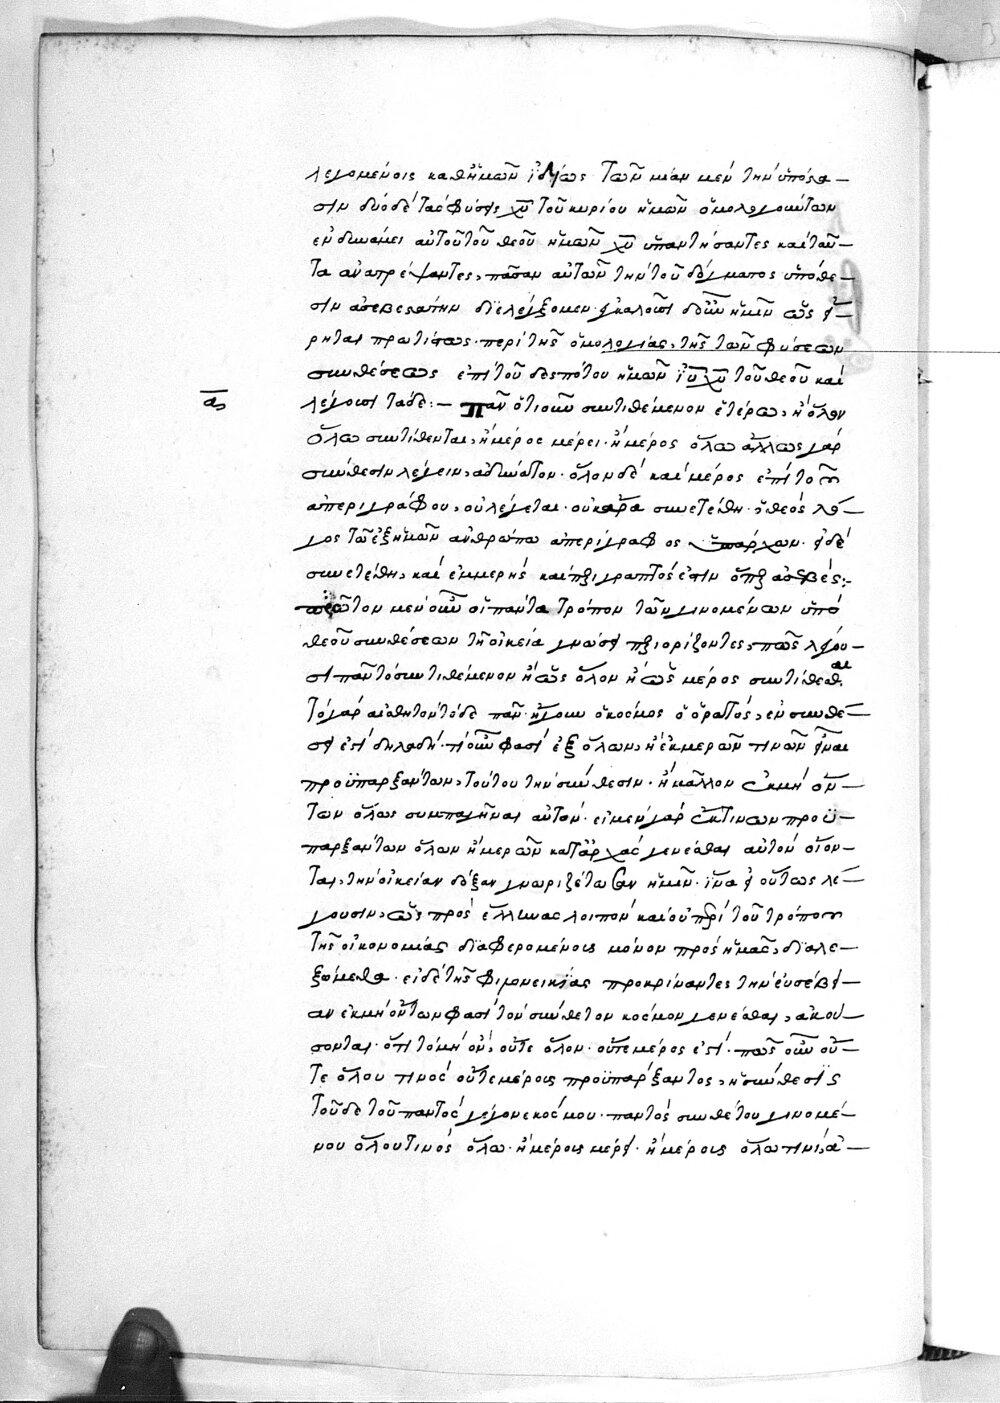 λεγομένοις καθ' ἡμῶν ἰδίως τῶν μίαν μὲν τὴν ὑπόστα-
σιν δύο δὲ τὰς φύσεις χῡ τοῦ κυρίου ἡμῶν ὁμολογούντων
ἐν δυνάμει αὐτοῦ τοῦ θεοῦ ἡμῶν χῡ ὑπαντήσαντες καὶ ταῦ-
τα ἀνατρέψαντες, πᾶσαν αὐτῶν τὴν τοῦ δόγματος ὑπόθε-
σιν ἀσεβεστάτην διελέγξομεν· ἐγκαλοῦσι δ' οὖν ἡμῖν ὡς εἴ-
ρηται πρωτίστως· περὶ τῆς ὁμολογίας, τῆς τῶν φύσεων
συνθέσεως ἐπὶ τοῦ δεσπότου ἡμῶν ῑῡ χῡ τοῦ θεοῦ καὶ
ᾱον λέγουσι τάδε:- Πᾶν ὁτιοῦν συντιθέμενον ἑτέρω, ἢ ὅλον
ὅλω συντίθεται, ἢ μέρος μέρει· ἢ μέρος ὅλω ἄλλως γὰρ
σύνθεσιν λέγειν, ἀδύνατον· ὅλον δὲ καὶ μέρος ἐπὶ τοῦ
ἀπεριγράφου, οὐ λέγεται· οὐκ ἄρα συνετέθη· ὁ θεὸς λό-
γος τῶ ἐξ ἡμῶν ἀνθρώπω ἀπερίγραφος ὑπάρχων· εἰ δὲ
συνετέθη, καὶ ἐμμερὴς καὶ περιγραπτός ἐστιν ὅπερ ἀσεβές:
πρῶτον μὲν οὖν οἱ πάντα τρόπον τῶν γινομένων ὑπὸ
θεοῦ συνθέσεων τῆ οἰκεία γνώσει περιορίζοντες, πῶς λέγου-
σι πᾶν τὸ συντιθέμενον ἢ ὡς ὅλον ἢ ὡς μέρος συντίθεσθαι
τὸ γὰρ αἰσθητὸν τόδε πᾶν· ἤγουν ὁ κόσμος ὁ ὁρατός, ἐν συνθέ-
σει ἐστὶ δηλαδή· τί οὖν φασὶ ἐξ ὅλων, ἢ ἐκ μερῶν τινῶν εἶναι
προϋπαρξάντων, τούτου τὴν σύνθεσιν· ἢ μᾶλλον ἐκ μὴ ὄν-
των ὅλως συμπαγῆναι αὐτόν· εἰ μὲν γὰρ ἔκ τινων προϋ-
παρξάντων ὅλων ἢ μερῶν κατ' ἀρχὰς γενέσθαι αὐτὸν οἴον-
ται, τὴν οἰκείαν δόξαν γνωριζέτωσαν ἡμῖν· ἵνα εἰ οὕτως λέ-
γουσιν, ὡς πρὸς ἕλληνας λοιπὸν καὶ οὐ περὶ τοῦ τρόπου
τῆς οἰκονομίας διαφερομένους μόνον πρὸς ἡμᾶς, διαλε-
ξώμεθα· εἰ δὲ τῆς φιλονεικίας προκρίναντες τὴν εὐσέβει-
αν ἐκ μὴ ὄντων φασὶ τὸν σύνθετον κόσμον γενέσθαι, ἀκού-
σονται· ὅτι τὸ μὴ ὄν, οὔτε ὅλον· οὔτε μέρος ἐστί· πῶς οὖν οὔ-
τε ὅλου τινὸς οὔτε μέρους προϋπάρξαντος, ἡ σύνθεσις
τοῦδε τοῦ παντὸς γέγονε κόσμου· παντὸς συνθέτου γινομέ-
νου ὅλου τινὸς ὅλω· ἢ μέρους μέρει· ἢ μέρους ὅλω τινί, ἀ-